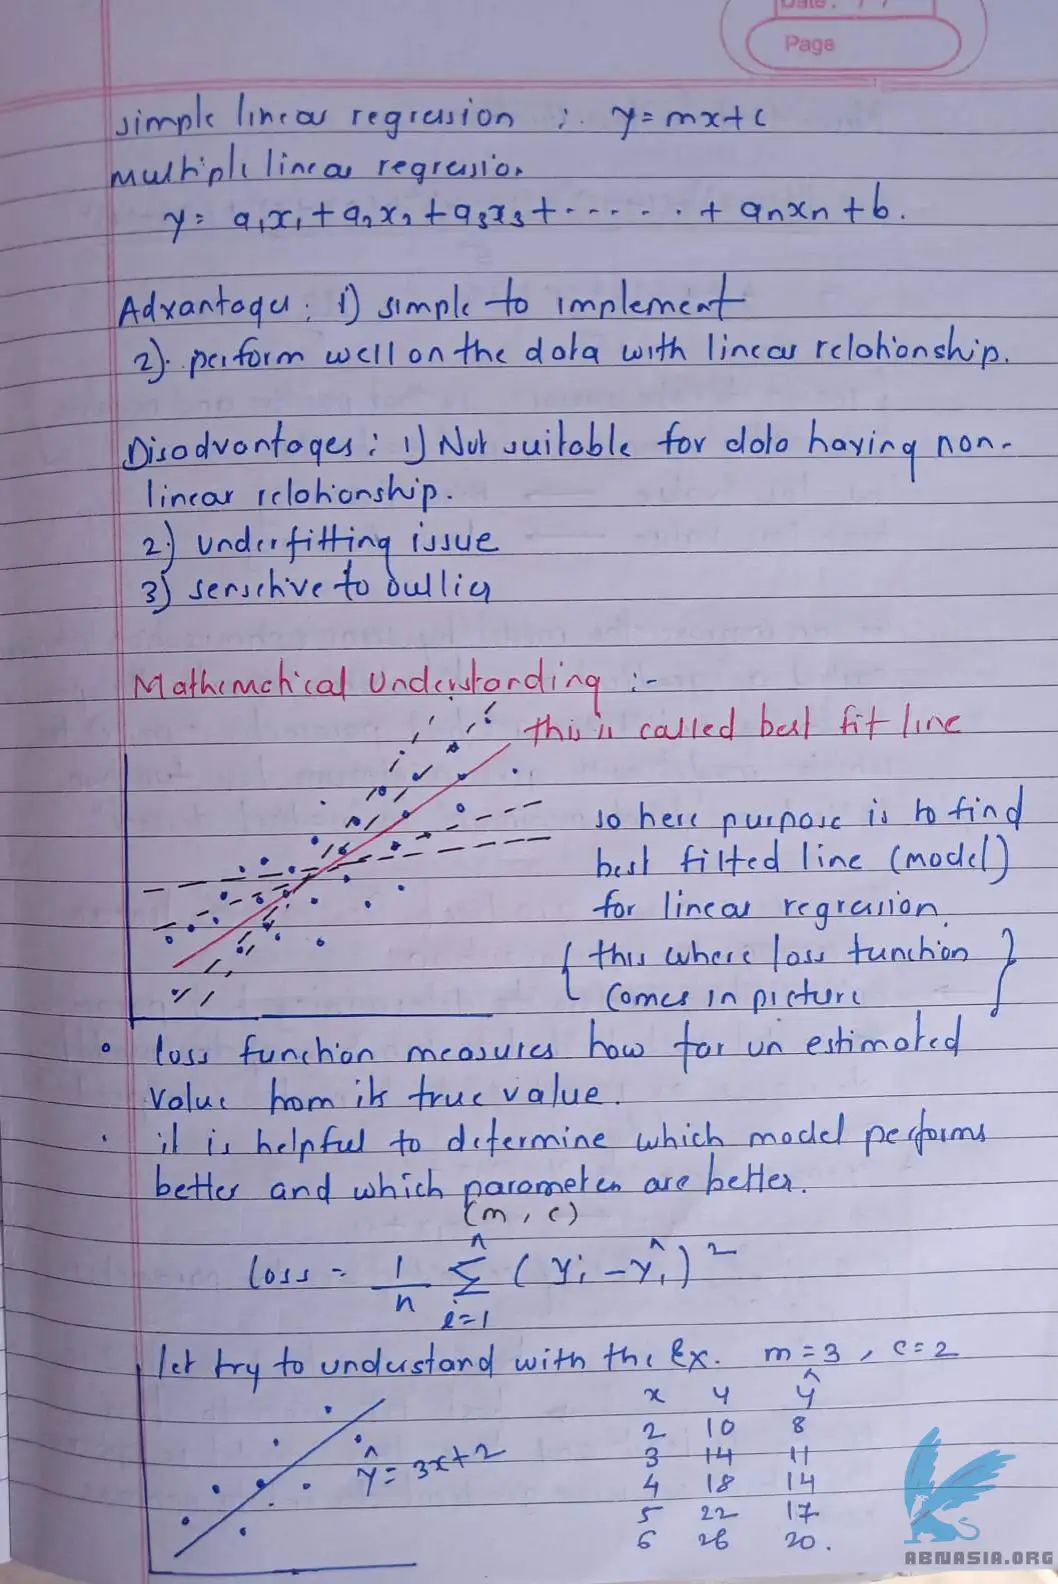 Date: / /
Page
simple linear regression :. y = mx + c
multiple linear regression
y = a₁x₁ + a₂x₂ + a₃x₃ + ...... + anxn + b.
Advantages : 1) simple to implement
2). perform well on the data with linear relationship.
Disadvantages : 1) Not suitable for data having non-
linear relationship.
2) underfitting issue
3) sensitive to outlier
Mathematical Understanding :-
this is called best fit line
so here purpose is to find
best fitted line (model)
for linear regression.
{ this where loss function }
comes in picture
• loss function measures how far un estimated
value from its true value.
• it is helpful to determine which model performs
better and which parameters are better.
(m, c)
loss = 1/n Σ i=1 n (yi - ŷi)²
let try to understand with the Ex. m = 3, c = 2
x y ŷ
2 10 8
3 14 11
ŷ = 3x + 2
4 18 14
5 22 17
6 26 20.
ABNASIA.ORG